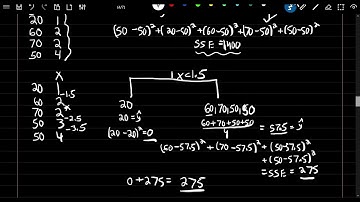 20 1
60 2
70 2
50 4
(50-50)² + (20-50)² + (60-50)² + (70-50)² + (50-50)²
SSE = 1400
X
20 1
60 2
70 2
50 3
50 4
-1.5
-2.5
-3.5
1 x<1.5
20
20 = ŷ
(20-20)² = 0
60, 70, 50, 50
60+70+50+50
4
= 57.5 = ŷ
(60-57.5)² + (70-57.5)² + (50-57.5)²
+ (50-57.5)²
= SSE = 275
0 + 275 = 275